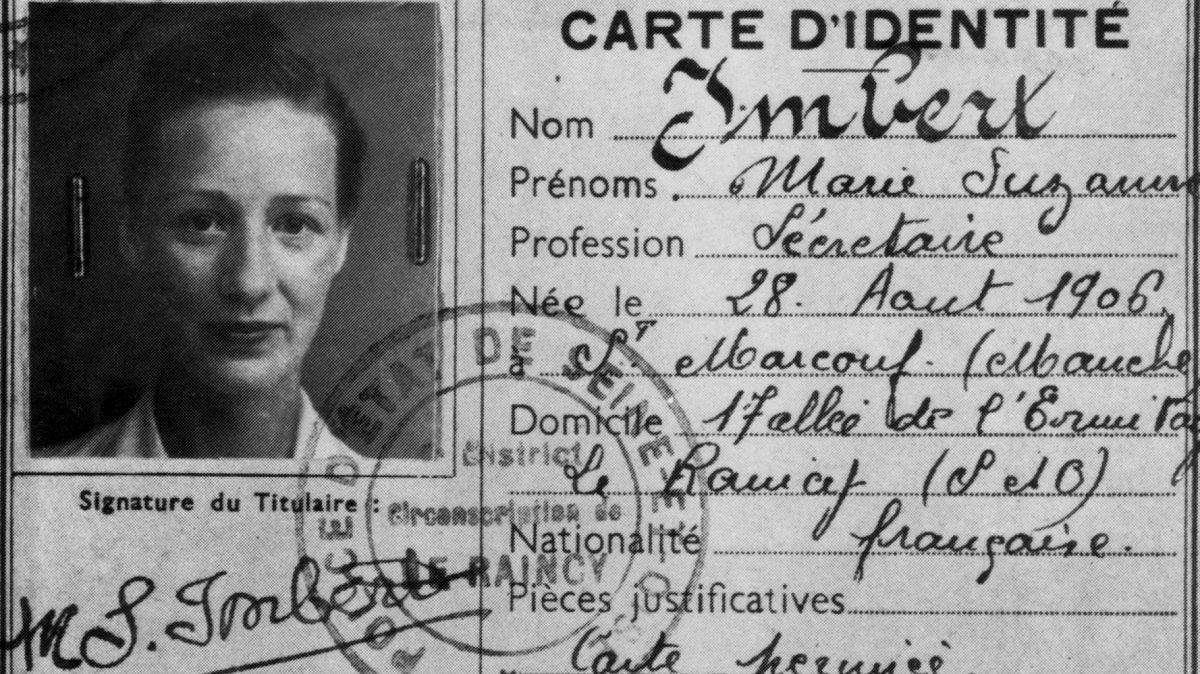 CARTE D'IDENTITÉ
Nom Imbert
Prénoms Marie Suzanne
Profession Sécretaire
Née le 28. Aout 1906.
à St Marcouf. (Manche
Domicile 17 allée de l'Ermita
Le Raincy (S et O)
Nationalité française.
Pièces justificatives
Carte
Signature du Titulaire :
M S. Imbert
DE SEINE-E
District
Circonscription de
LE RAINCY